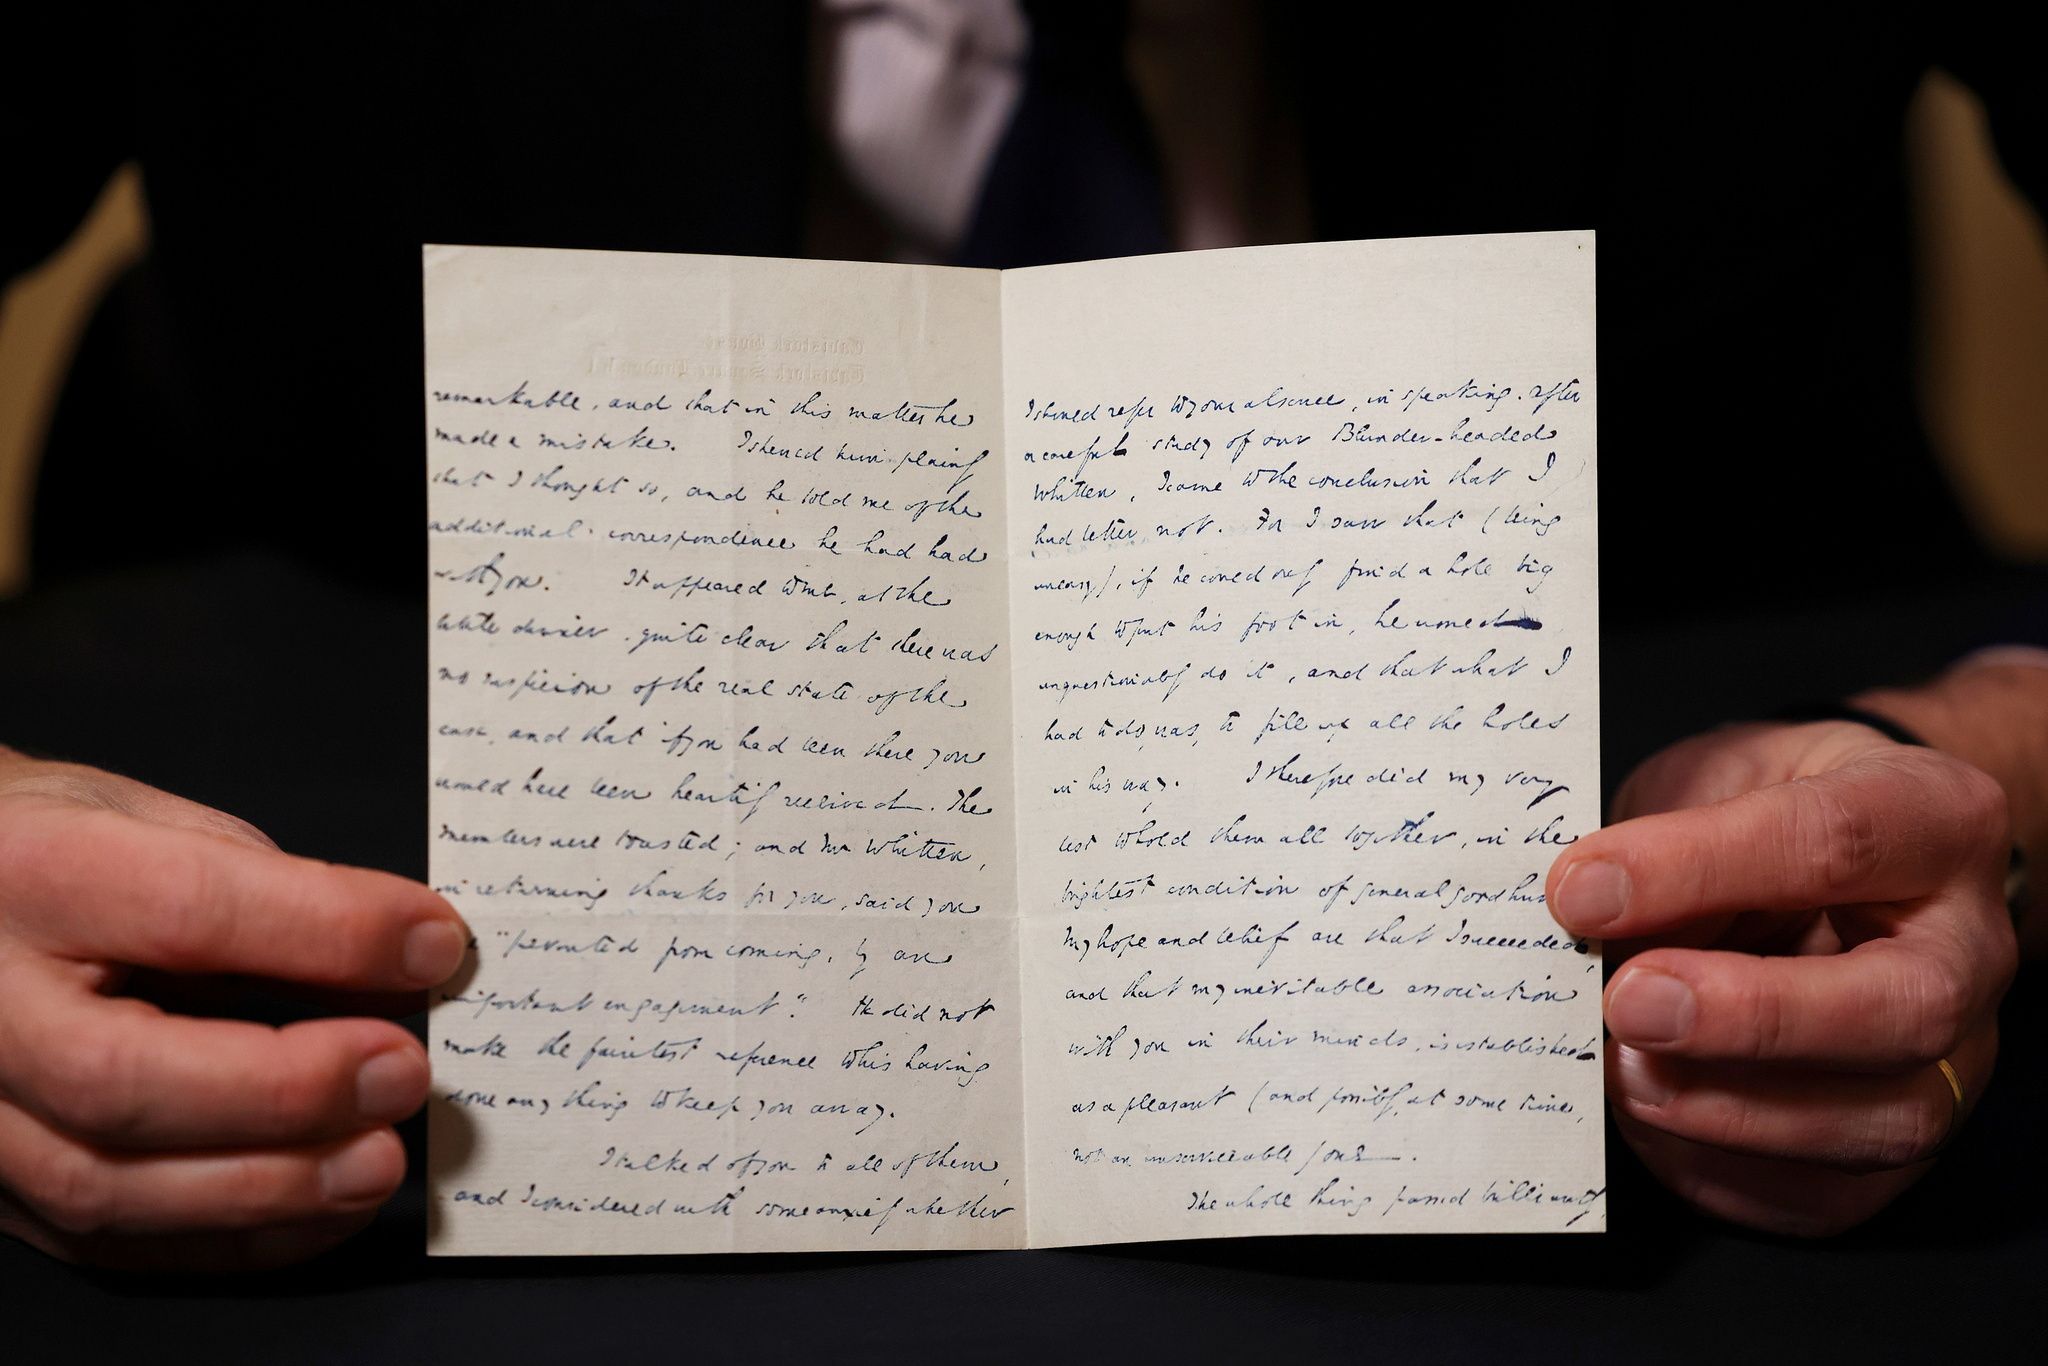 Tavistock House
Tavistock Square London
remarkable, and that in this matter he
made a mistake. I shewed him plainly
that I thought so, and he told me of the
additional correspondence he had had
with you. It appeared to me, at the
dinner, quite clear that there was
no suspicion of the real state of the
case, and that if you had been there you
would have been heartily received. The
members were toasted; and Mr Whitten,
in returning thanks for you, said you
"prevented from coming, by an
important engagement." He did not
make the faintest reference to his having
done any thing to keep you away.
I talked of you to all of them,
and I considered with some anxiety whether
I should refer to your absence, in speaking. After
a careful study of our Blunder-headed
Whitten, I came to the conclusion that I
had better not. For I saw that (being
uneasy), if he could only find a hole big
enough to put his foot in, he would
unquestionably do it, and that what I
had to do, was, to fill up all the holes
in his way. I therefore did my very
best to hold them all together, in the
brightest condition of general good hum
My hope and belief are that I succeeded,
and that my inevitable association
with you in their minds, is established
as a pleasant (and possibly, at some time,
not an unserviceable) one.
The whole thing passed brilliantly